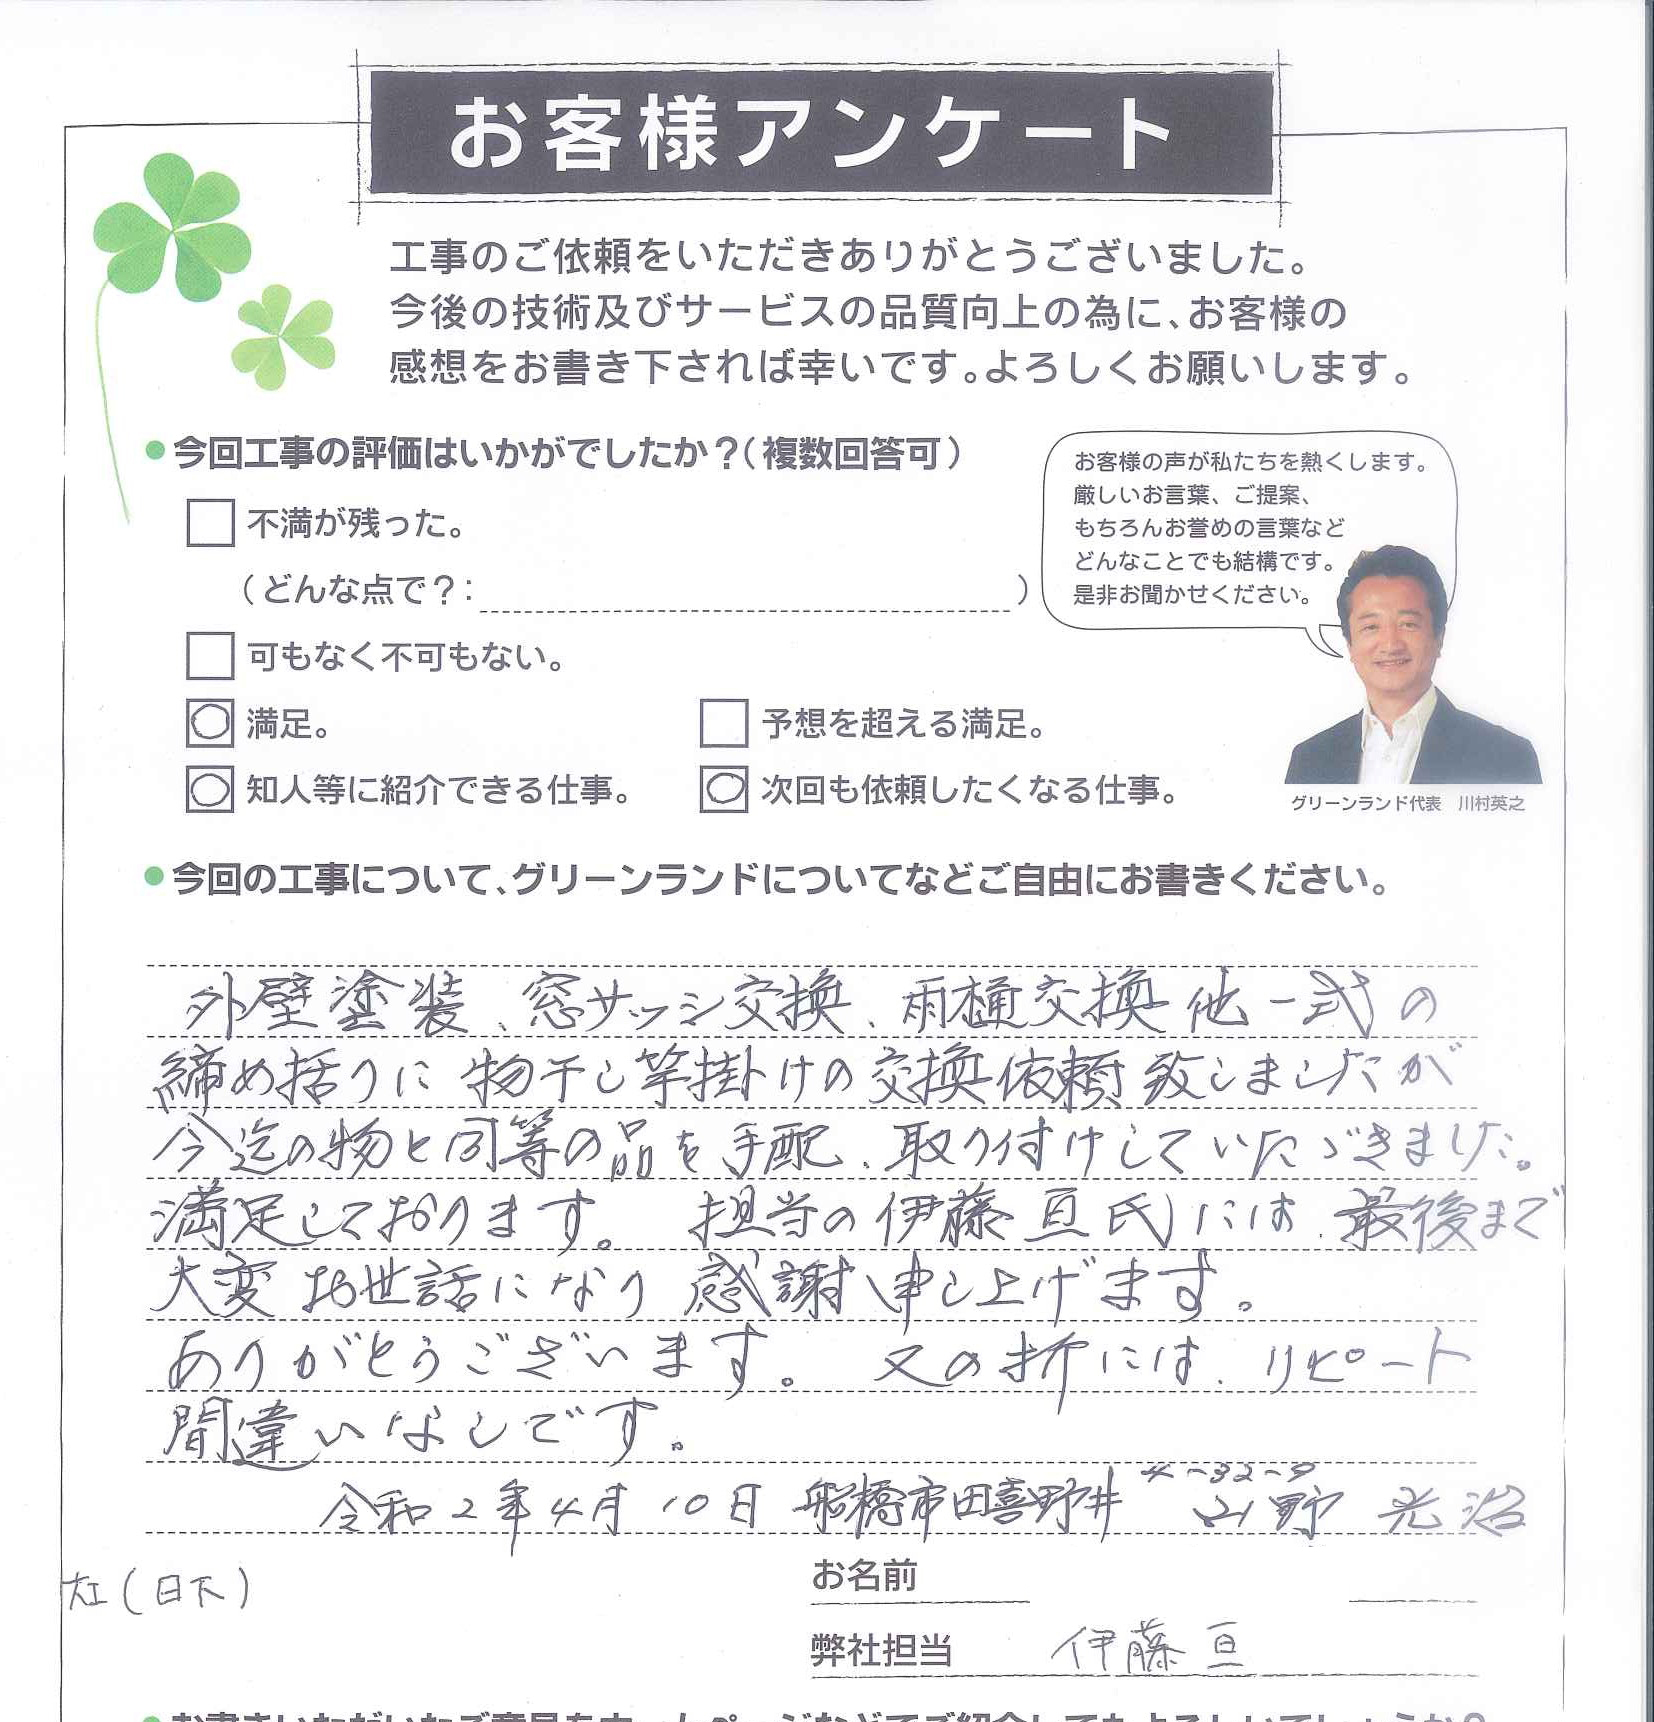 お客様アンケート
工事のご依頼をいただきありがとうございました。
今後の技術及びサービスの品質向上の為に、お客様の
感想をお書き下されば幸いです。よろしくお願いします。
今回工事の評価はいかがでしたか？（複数回答可）
不満が残った。
（どんな点で？：　）
可もなく不可もない。
満足。
予想を超える満足。
知人等に紹介できる仕事。
次回も依頼したくなる仕事。
お客様の声が私たちを熱くします。
厳しいお言葉、ご提案、
もちろんお誉めの言葉など
どんなことでも結構です。
是非お聞かせください。
グリーンランド代表　川村英之
今回の工事について、グリーンランドについてなどご自由にお書きください。
外壁塗装、窓サッシ交換、雨樋交換他一式の
締め括りに物干し竿掛けの交換依頼致しましたが
今迄の物と同等の品を手配、取り付けしていただきました。
満足しております。担当の伊藤亘氏には、最後まで
大変お世話になり感謝申し上げます。
ありがとうございます。又の折には、リピート
間違いなしです。
令和2年4月10日 船橋市田喜野井4-32-9 山野 光治
大工(日下)
お名前
弊社担当 伊藤亘
お書きいただいたご意見をホームページなどでご紹介してもよろしいでしょうか？